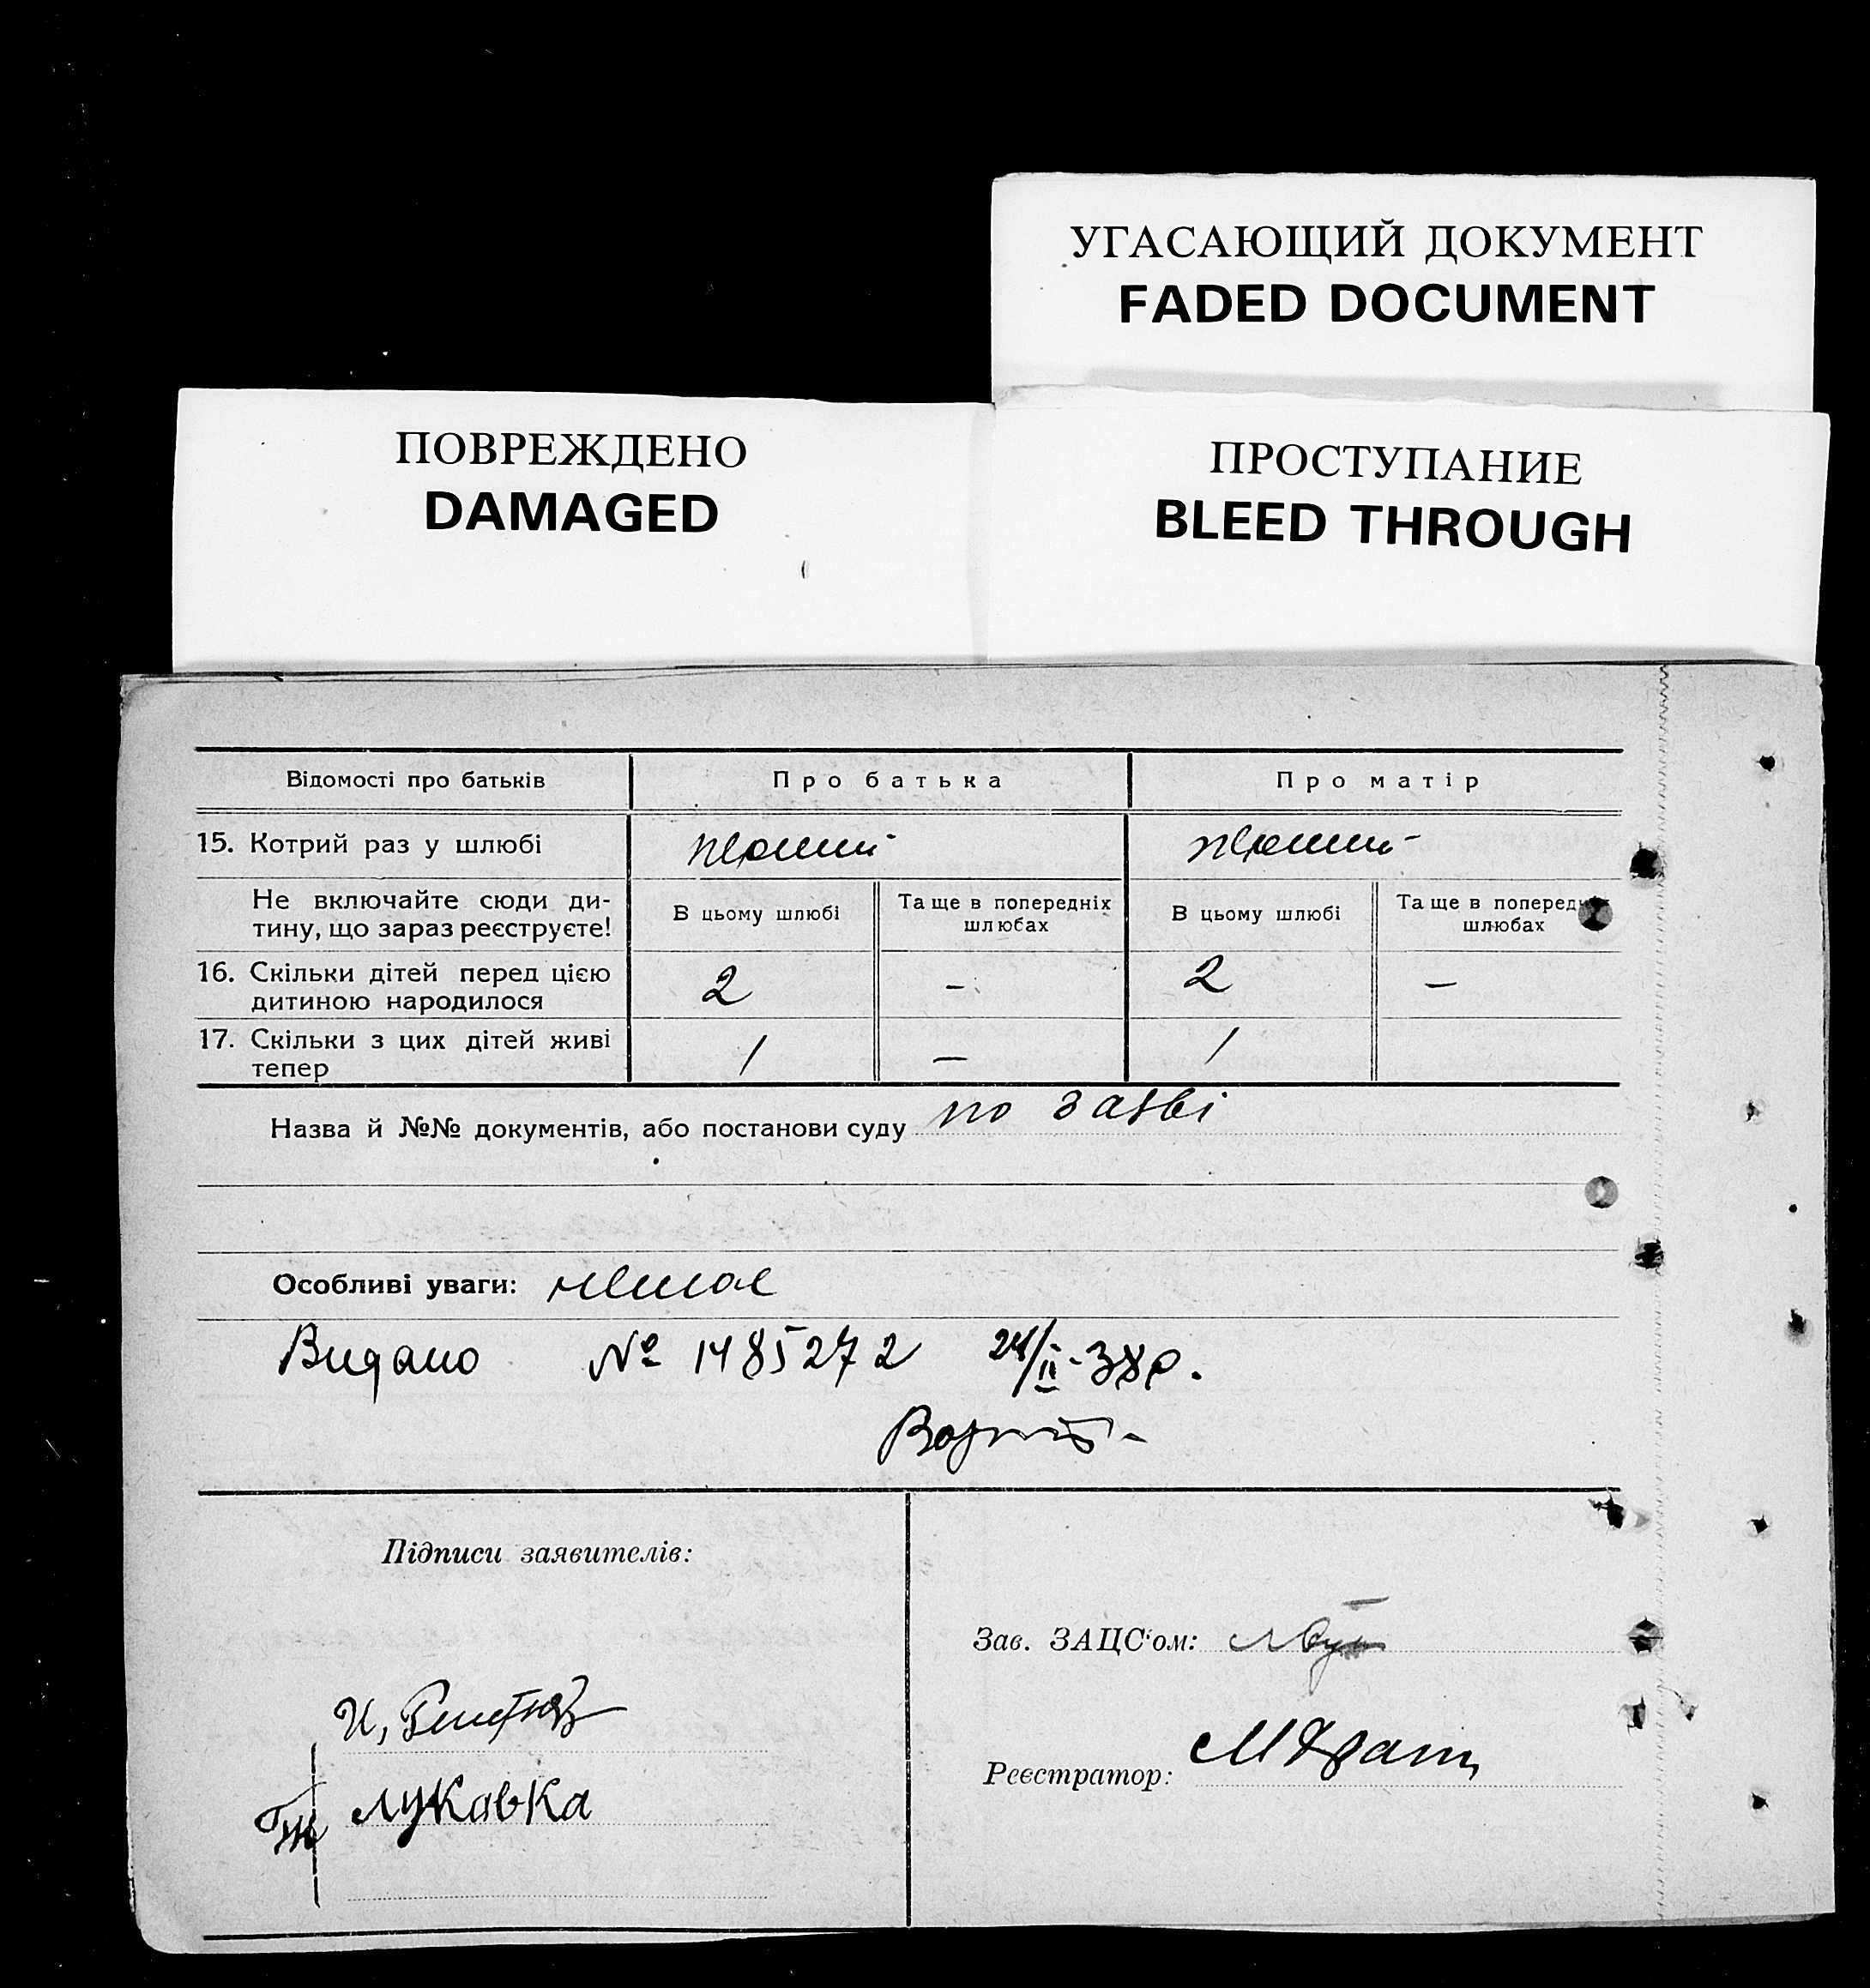 УГАСАЮЩИЙ ДОКУМЕНТ
FADED DOCUMENT
ПОВРЕЖДЕНО
DAMAGED
ПРОСТУПАНИЕ
BLEED THROUGH
Відомості про батьків Про батька Про матір
15. Котрий раз у шлюбі перший перший
Не включайте сюди ди-
тину, що зараз реєструєте!
В цьому шлюбі
Та ще в попередніх
шлюбах
В цьому шлюбі
Та ще в попередніх
шлюбах
16. Скільки дітей перед цією
дитиною народилося
2 — 2 —
17. Скільки з цих дітей живі
тепер
1 — 1
Назва й №№ документів, або постанови суду по заяві
Особливі уваги: немає
Видано № 1485272 24/II-38р.
Підписи заявителів:
Зав. ЗАЦС'ом:
И,
Реєстратор:
Лукавка